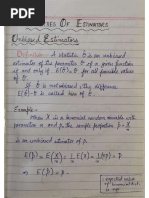 Of Estimators
Unbiased Estimators
Definition: A statistic Θ̂ is an unbiased
estimator of the parameter Θ of a given function
if and only if E(Θ̂) = Θ for all possible values
of Θ.
If Θ̂ is not unbiased then
E(Θ̂)-Θ is called bias of Θ̂.
Example -
When X is a binomial random variable with
parameters n and p, the sample proportion p̂ = X/n
is an unbiased estimator of p.
E(p̂) = E(X/n) = 1/n E(X) = 1/n (np) = p
E(p̂) = p